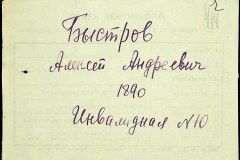 Быстров
Алексей Андреевич
1890
Инвалидная №10